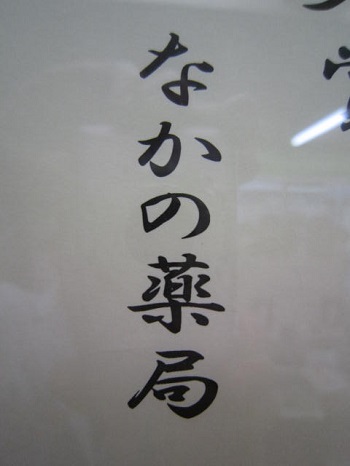 なかの薬局